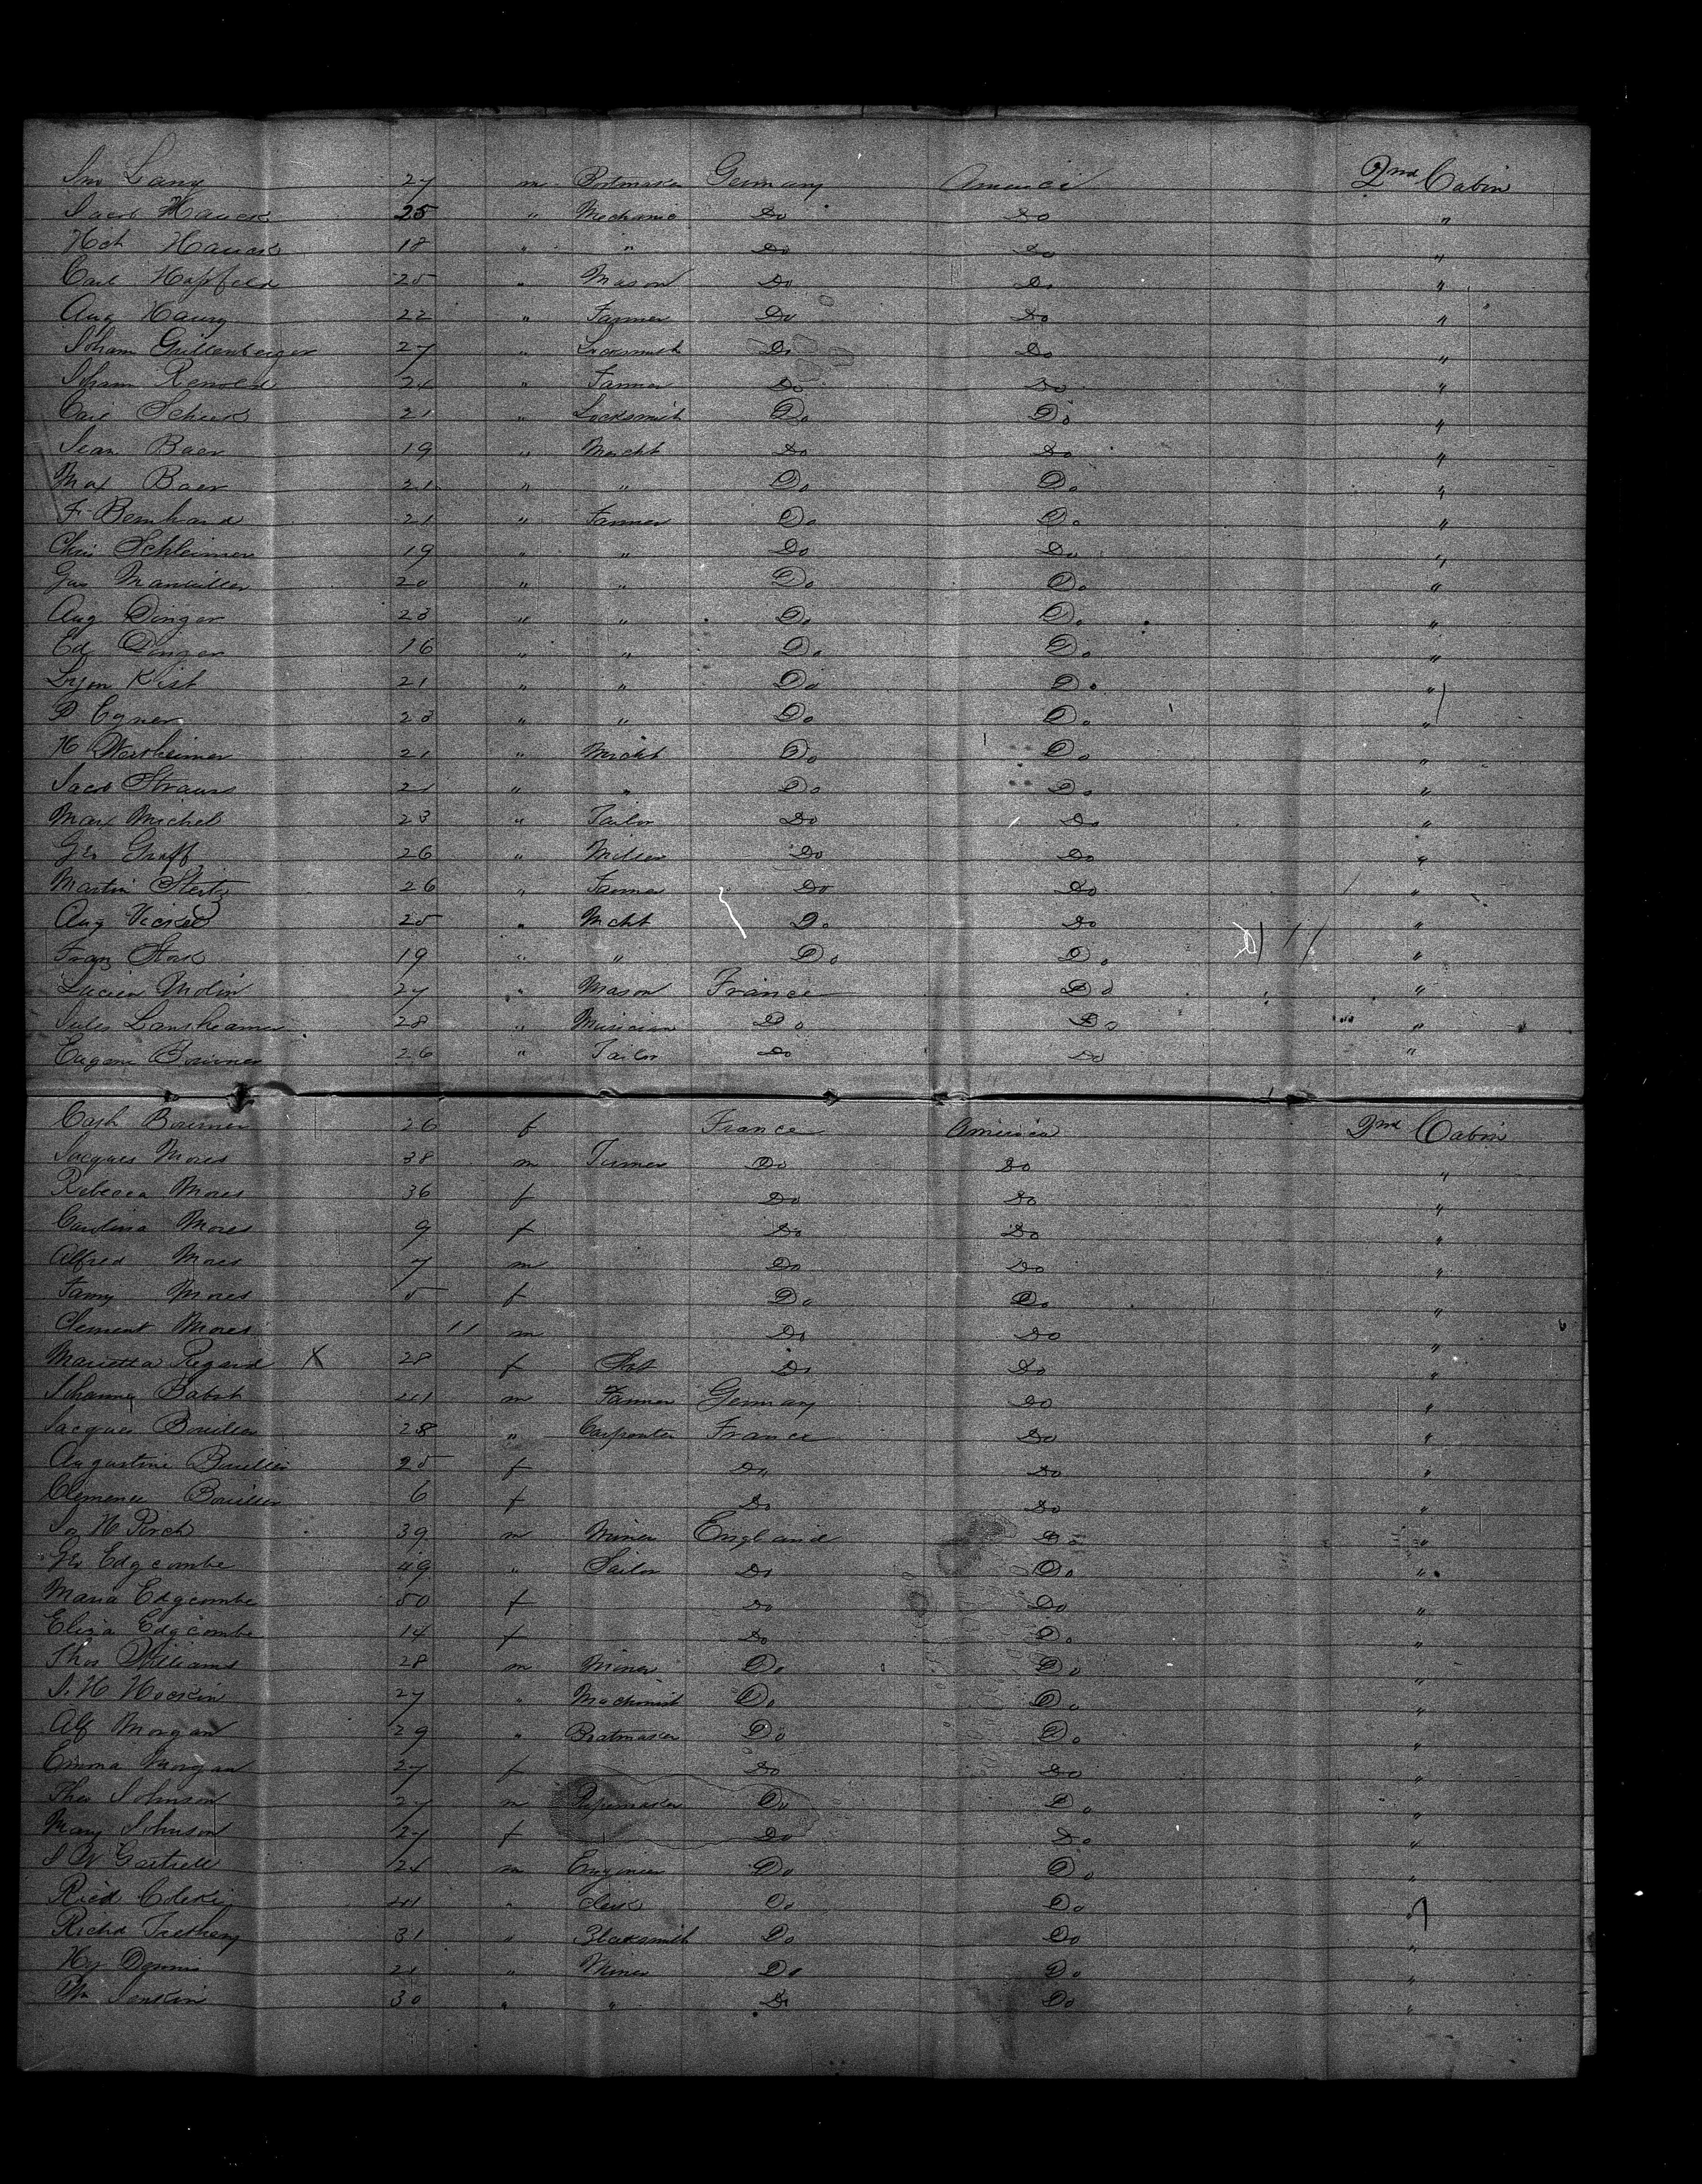 Jno Lang 27 m Bootmaker Germany America 2nd Cabin
Jacob Hauck 25 " Mechanic Do Do "
Hch Hauck 18 " " Do Do "
Carl Hapfeld 25 " Mason Do Do "
Aug Haury 22 " Farmer Do Do "
Joham Grillenberger 27 " Locksmith Do Do "
Joham 24 " Farmer Do Do "
Carl Schuck 21 " Locksmith Do Do "
Jean Baer 19 " Mercht Do Do "
Max Baer 21 " " Do Do "
F Bernhard 21 " Farmer Do Do "
Chris Schleimer 19 " " Do Do "
Gus 20 " " Do Do "
Aug Dinger 23 " " Do Do "
Ed Dinger 16 " " Do Do "
Kist 21 " " Do Do "
P Egner 23 " " Do Do "
H Wertheimer 21 " Mercht Do Do "
Jacob Straus 21 " " Do Do "
Max Michel 23 " Tailor Do Do "
Geo Graff 26 " Miller Do Do "
Martin Stertz 26 " Farmer Do Do "
Aug Vickel 25 " Mcht Do Do "
Franz Stork 19 " " Do Do "
Lucien Molin 27 " Mason France Do "
Jules 28 " Musician Do Do "
Eugene Bourner 26 " Tailor Do Do "
Cath Bourner 26 f France America 2nd Cabin
Jacques Mores 38 m Turner Do Do "
Rebecca Mores 36 f Do Do "
Carolina Mores 9 f Do Do "
Alfred Mores 7 m Do Do "
Fanny Mores 5 f Do Do "
Clement Mores 11 m Do Do "
Marietta Regard X 28 f Do Do "
Johanny Babst 41 m Farmer Germany Do "
Jacques Bouiller 28 " Carpenter France Do "
Augustine Bouiller 25 f Do Do "
Clemence Bouiller 6 f Do Do "
H Pirch 39 m Miner England Do "
Geo Edgcombe 49 " Sailor Do Do "
Maria Edgcombe 50 f Do Do "
Eliza Edgcombe 14 f Do Do "
Thos Williams 28 m Miner Do Do "
J. H Hockin 27 " Machinist Do Do "
Alf Morgan 29 " Bootmaker Do Do "
Emma Morgan 27 f Do Do "
Thos Johnson 27 m Do Do "
Mary Johnson 27 f Do Do "
J W Gartrell 24 m Engineer Do Do "
Ricd 41 " Clerk Do Do "
Richd Trethewy 31 " Blacksmith Do Do "
Hy Dennis 21 " Miner Do Do "
Wm Jenkin 30 " " Do Do "